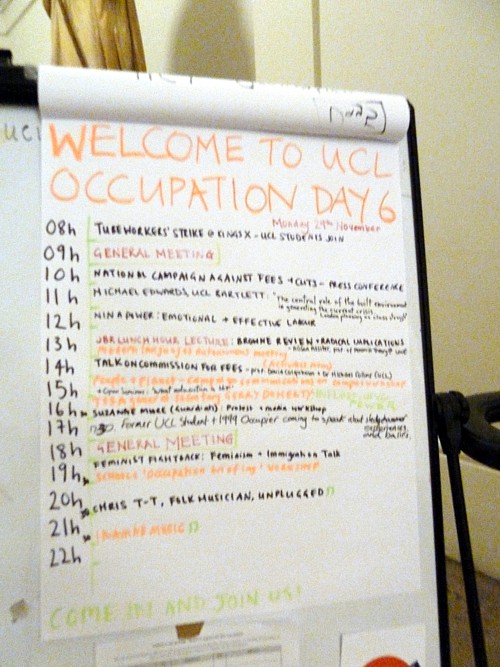 UCL
WELCOME TO UCL
OCCUPATION DAY 6
Monday 29th November
08h TUBEWORKERS' STRIKE @ KINGS X - UCL STUDENTS JOIN
09h GENERAL MEETING
10h NATIONAL CAMPAIGN AGAINST FEES + CUTS - PRESS CONFERENCE
11h MICHAEL EDWARDS, UCL BARTLETT: "The central role of the built environment
in generating the current crisis.
12h NINA POWER: EMOTIONAL + EFFECTIVE LABOUR
13h JBR LUNCH HOUR LECTURE: BROWNE REVIEW + RADICAL IMPLICATIONS
modern languages autonomous meeting
14h TALK ON COMMISSION FOR FEES -
People + Planet - campaign communications
15h
16h SUZANNE MOORE (Guardian): Protest + media workshop
17h Former UCL Student + 1999 Occupier coming to speak about
experiences
and beliefs.
18h GENERAL MEETING
FEMINIST FIGHTBACK: Feminism + Immigration Talk
19h SCHOOLS 'OCCUPATION BRIEFING' WORKSHOP
20h CHRIS T-T, FOLK MUSICIAN, UNPLUGGED
21h MUSIC
22h
COME IN! AND JOIN US!